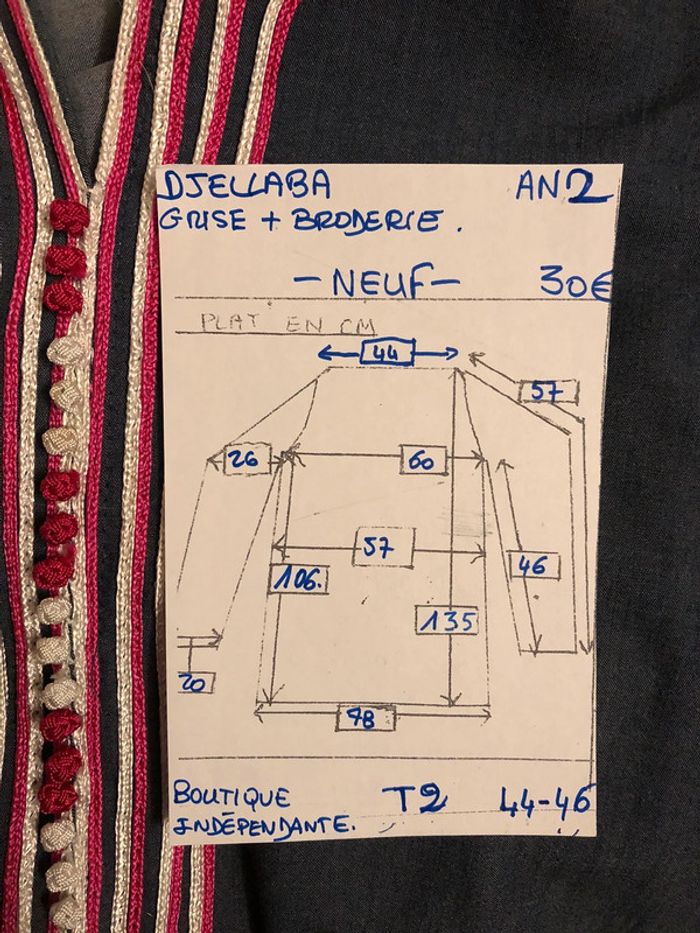 DJELLABA AN2
GRISE + BRODERIE.
- NEUF - 30€
PLAT EN CM
44
57
26
60
57
46
106.
135
20
78
BOUTIQUE T2 44-46
INDÉPENDANTE.